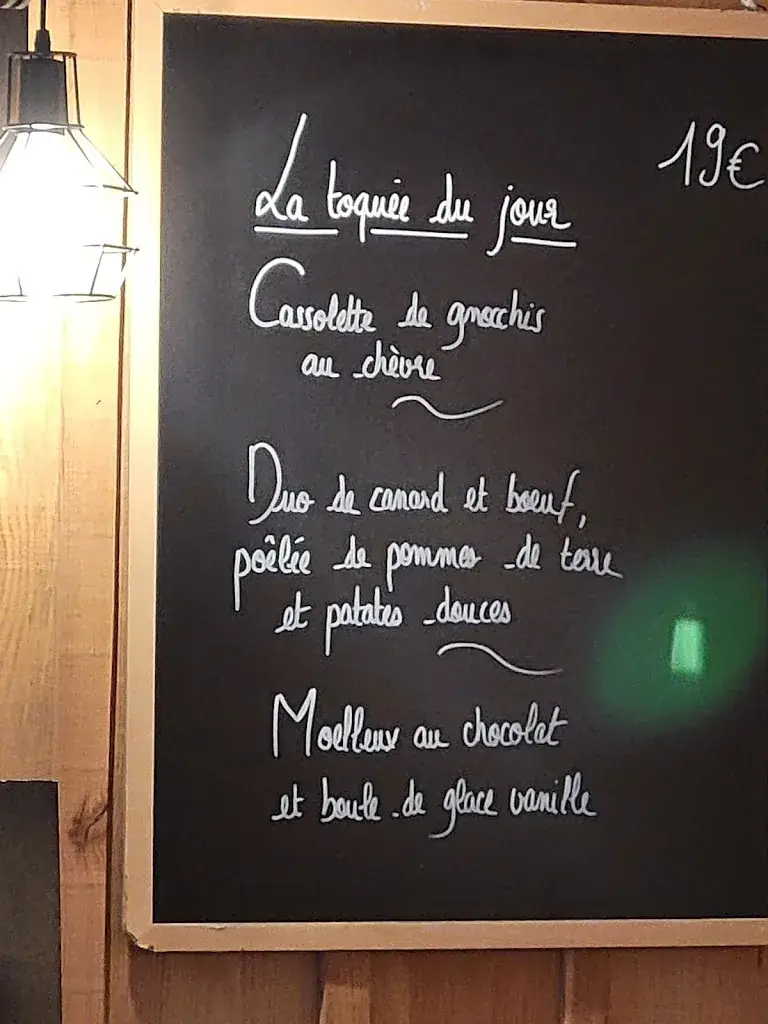 La toquée du jour
19€
Cassolette de gnocchis
au chèvre
Duo de canard et boeuf,
poêlée de pommes de terre
et patates douces
Moelleux au chocolat
et boule de glace vanille